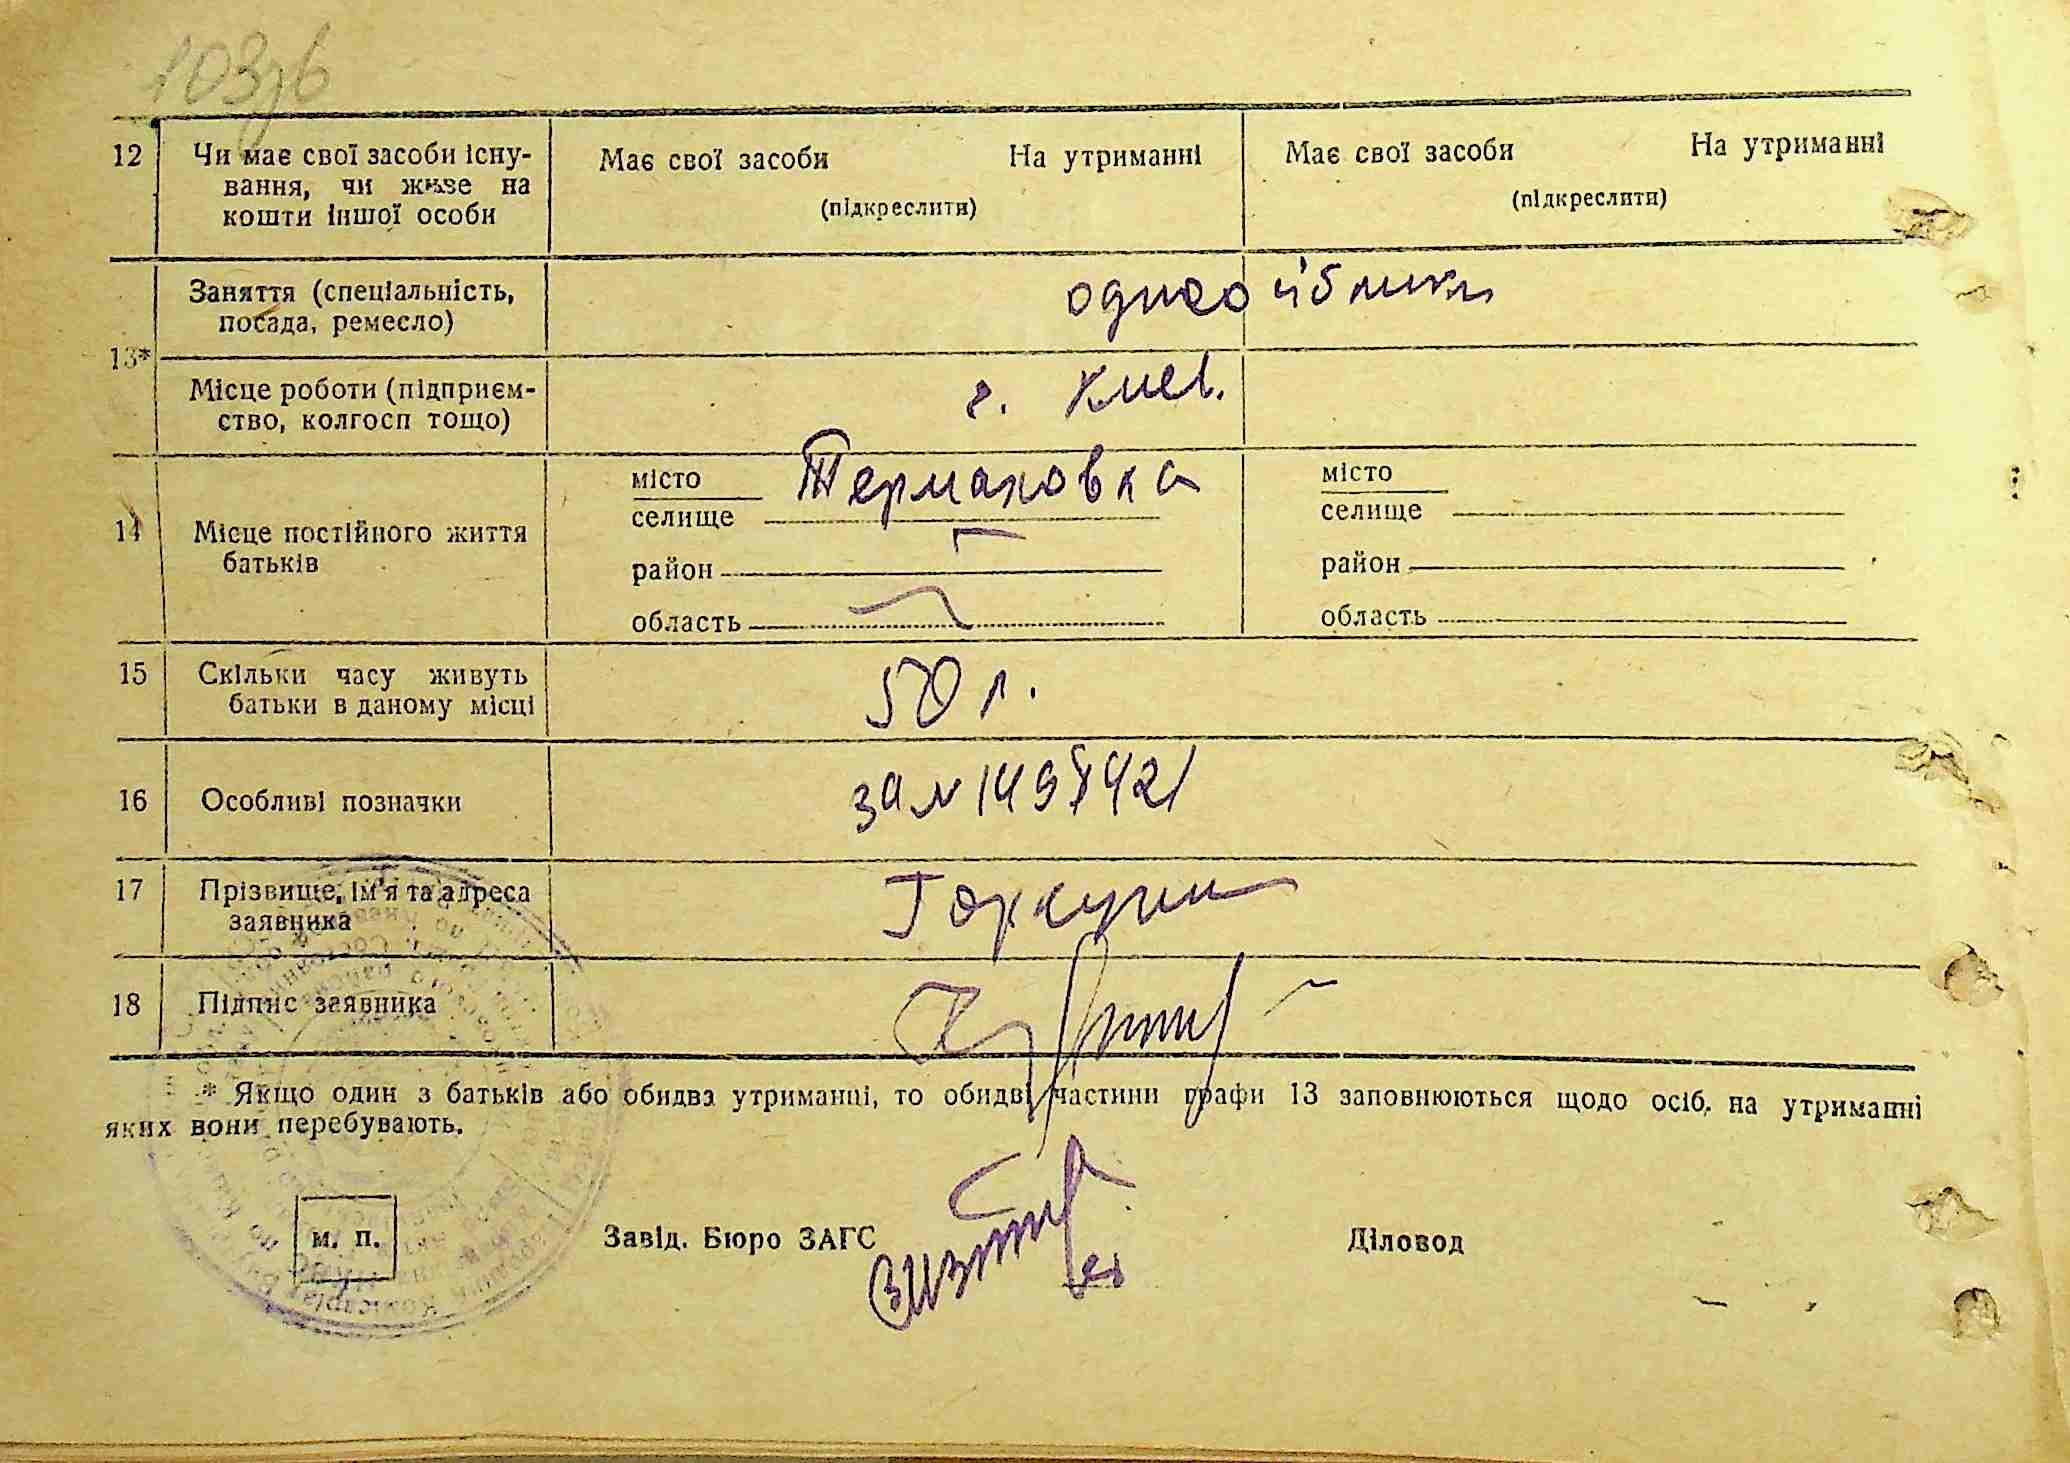 103зв
12
Чи має свої засоби існу-
вання, чи живе на
кошти іншої особи
Має свої засоби На утриманні
(підкреслити)
Має свої засоби На утриманні
(підкреслити)
13*
Заняття (спеціальність,
посада, ремесло)
Місце роботи (підприєм-
ство, колгосп тощо)
г. Киев.
14
Місце постійного життя
батьків
місто
селище
Термаховка
район
область
місто
селище
район
область
15
Скільки часу живуть
батьки в даному місці
50 л.
16
Особливі позначки
17
Прізвище, ім'я та адреса
заявника
18
Підпис заявника
* Якщо один з батьків або обидва утриманці, то обидві частини графи 13 заповнюються щодо осіб, на утриманні
яких вони перебувають.
м. п.
Завід. Бюро ЗАГС
Діловод